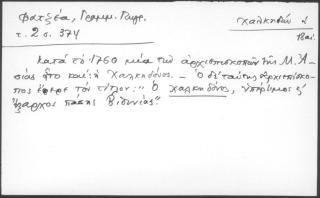 Φατζέα, Γραμμ. Γυμν. Χαλκηδών
τ. 2 σ. 374 Βιθ.
κατά τό 1760 μία τῶν ἀρχιεπισκοπῶν τῆς Μ. Ἀ-
σίας ἦτο καί ἡ Χαλκηδόνος. – Ὁ δέ ταύτης ἀρχιεπίσκο-
πος ἔφερε τόν τίτλον: "Ὁ Χαλκηδόνος, ὑπέρτιμος ἐ
ἔξαρχος πάσης Βιθυνίας".